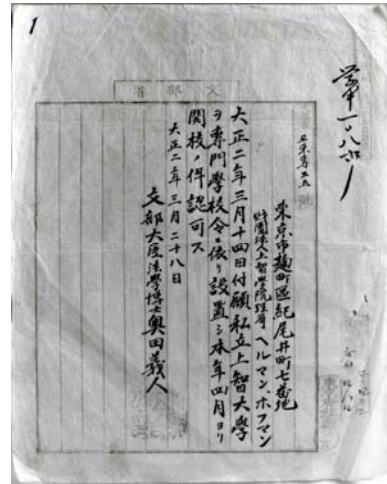 1
東京市麹町區紀尾井町七番地
財團法人上智學院理事 ヘルマン、ホフマン
大正二年三月十四日付願私立上智大學
ヲ專門學校令ニ依リ設置シ本年四月ヨリ
開校ノ件認可ス
大正二年三月二十八日
文部大臣法學博士奧田義人
文部省